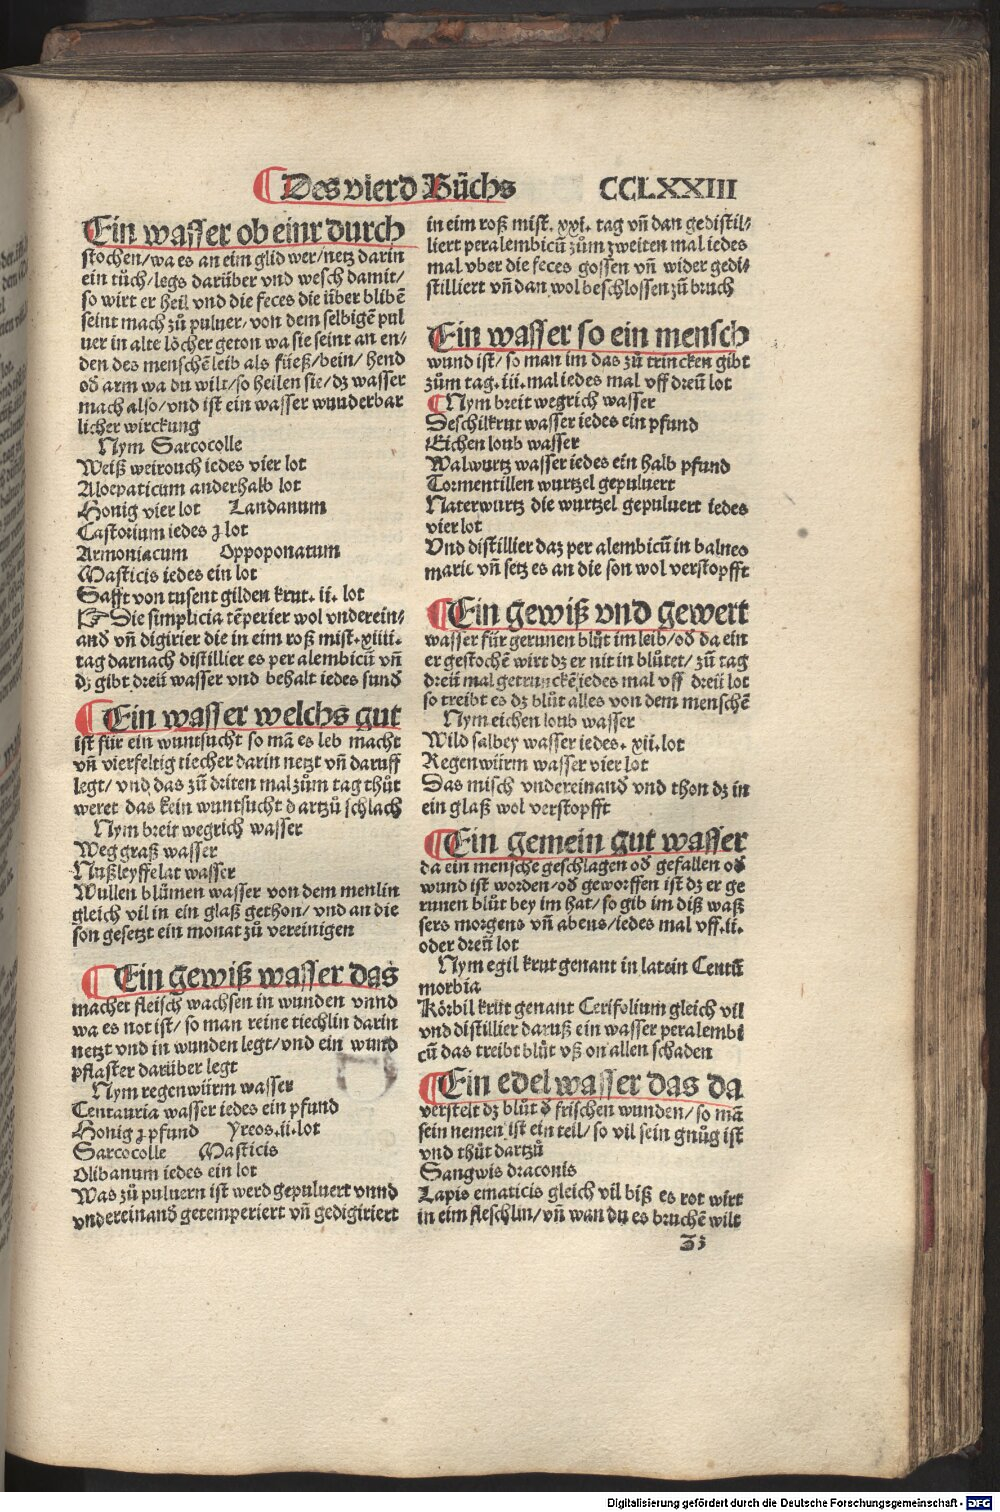 Des vierd Bůchs CCLXXIII
Ein wasser ob einr durch
stochen/wa es an eim glid wer/netz darin
ein tůch/legs darüber vnd wesch damit/
so wirt er heil vnd die feces die über blibē
seint mach zů puluer/von dem selbigē pul
uer in alte löcher geton wa sie seint an en/
den des menschē leib als füeß/bein/hend
od̄ arm wa du wilt/so heilen sie/dz wasser
mach also/vnd ist ein wasser wunderbar
licher wirckung
Nym Sarcocolle
Weiß weirouch iedes vier lot
Aloepaticum anderhalb lot
Honig vier lot Landanum
Castorium iedes ʒ lot
Armoniacum Oppoponatum
Masticis iedes ein lot
Safft von tusent gilden krut. ii. lot
☞ Die simplicia tēperier wol vnderein/
and̄ vn̄ digirier die in eim roß mist.xiiii.
tag darnach distillier es per alembicū vn̄
dz gibt dreü wasser vnd behalt iedes sund̄
¶ Ein wasser welchs gut
ist für ein wuntsucht so mā es leb macht
vn̄ vierfeltig tiecher darin netzt vn̄ daruff
legt/vnd das zů driten mal zům tag thůt
weret das kein wuntsucht dartzů schlach
Nym breit wegrich wasser
Weg graß wasser
Nußleyffelat wasser
Wullen blůmen wasser von dem menlin
gleich vil in ein glaß gethon/vnd an die
son gesetzt ein monat zů vereinigen
¶ Ein gewiß wasser das
machet fleisch wachsen in wunden vnnd
wa es not ist/so man reine tiechlin darin
netzt vnd in wunden legt/vnd ein wund
pflaster darüber legt
Nym regenwürm wasser
Centauria wasser iedes ein pfund
Honig ʒ pfund Yreos.ii.lot
Sarcocolle Masticis
Olibanum iedes ein lot
Was zů puluern ist werd gepuluert vnnd
vndereinand̄ getemperiert vn̄ gedigiriert
in eim roß mist. xxi. tag vn̄ dan gedistil/
liert per alembicū zům zweiten mal iedes
mal vber die feces gossen vn̄ wider gedi/
stilliert vn̄ dan wol beschlossen zů bruch
Ein wasser so ein mensch
wund ist/so man im das zů trincken gibt
zům tag.iii.mal iedes mal vff dreü lot
¶ Nym breit wegrich wasser
Deschilkrut wasser iedes ein pfund
Eichen loub wasser
Walwurtz wasser iedes ein halb pfund
Tormentillen wurtzel gepuluert
Naterwurtz die wurtzel gepuluert iedes
vier lot
Vnd distillier daz per alembicū in balneo
marie vn̄ setz es an die son wol verstopfft
¶ Ein gewiß vnd gewert
wasser für gerunen blůt im leib/od̄ da ein
er gestochē wirt dz er nit in blůtet/zů tag
dreü mal getrunckē iedes mal vff dreü lot
so treibt es dz blůt alles von dem menschē
Nym eichen loub wasser
Wild salbey wasser iedes. xii.lot
Regenwürm wasser vier lot
Das misch vndereinand̄ vnd thon dz in
ein glaß wol verstopfft
¶ Ein gemein gut wasser
da ein mensche geschlagen od̄ gefallen od̄
wund ist worden/od̄ geworffen ist dz er ge
runen blůt bey im hat/so gib im diß waß
sers morgens vn̄ abens/iedes mal vff.ii.
oder dreü lot
Nym egil krut genant in latein Centū
morbia
Körbil krut genant Cerifolium gleich vil
vnd distillier daruß ein wasser per alembi
cū das treibt blůt vß on allen schaden
¶ Ein edel wasser das da
verstelt dz blůt d̄ frischen wunden/so mā
sein nemen ist ein teil/so vil sein gnůg ist
vnd thůt dartzů
Sangwis draconis
Lapis ematicis gleich vil biß es rot wirt
in eim fleschlin/vn̄ wan du es bruchē wilt
Zz
Digitalisierung gefördert durch die Deutsche Forschungsgemeinschaft - DFG